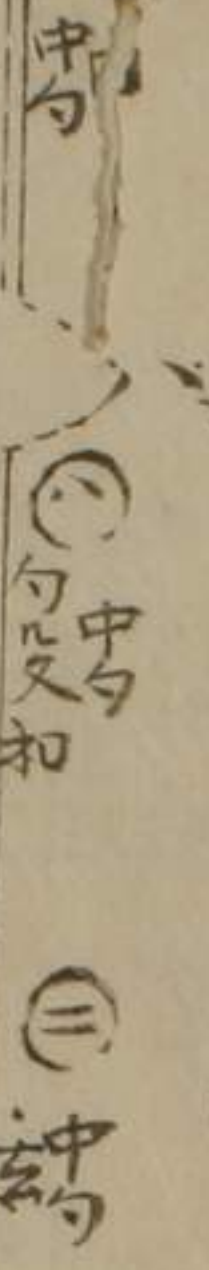 中勾
中勾
勾殳和
二
中勾
玄